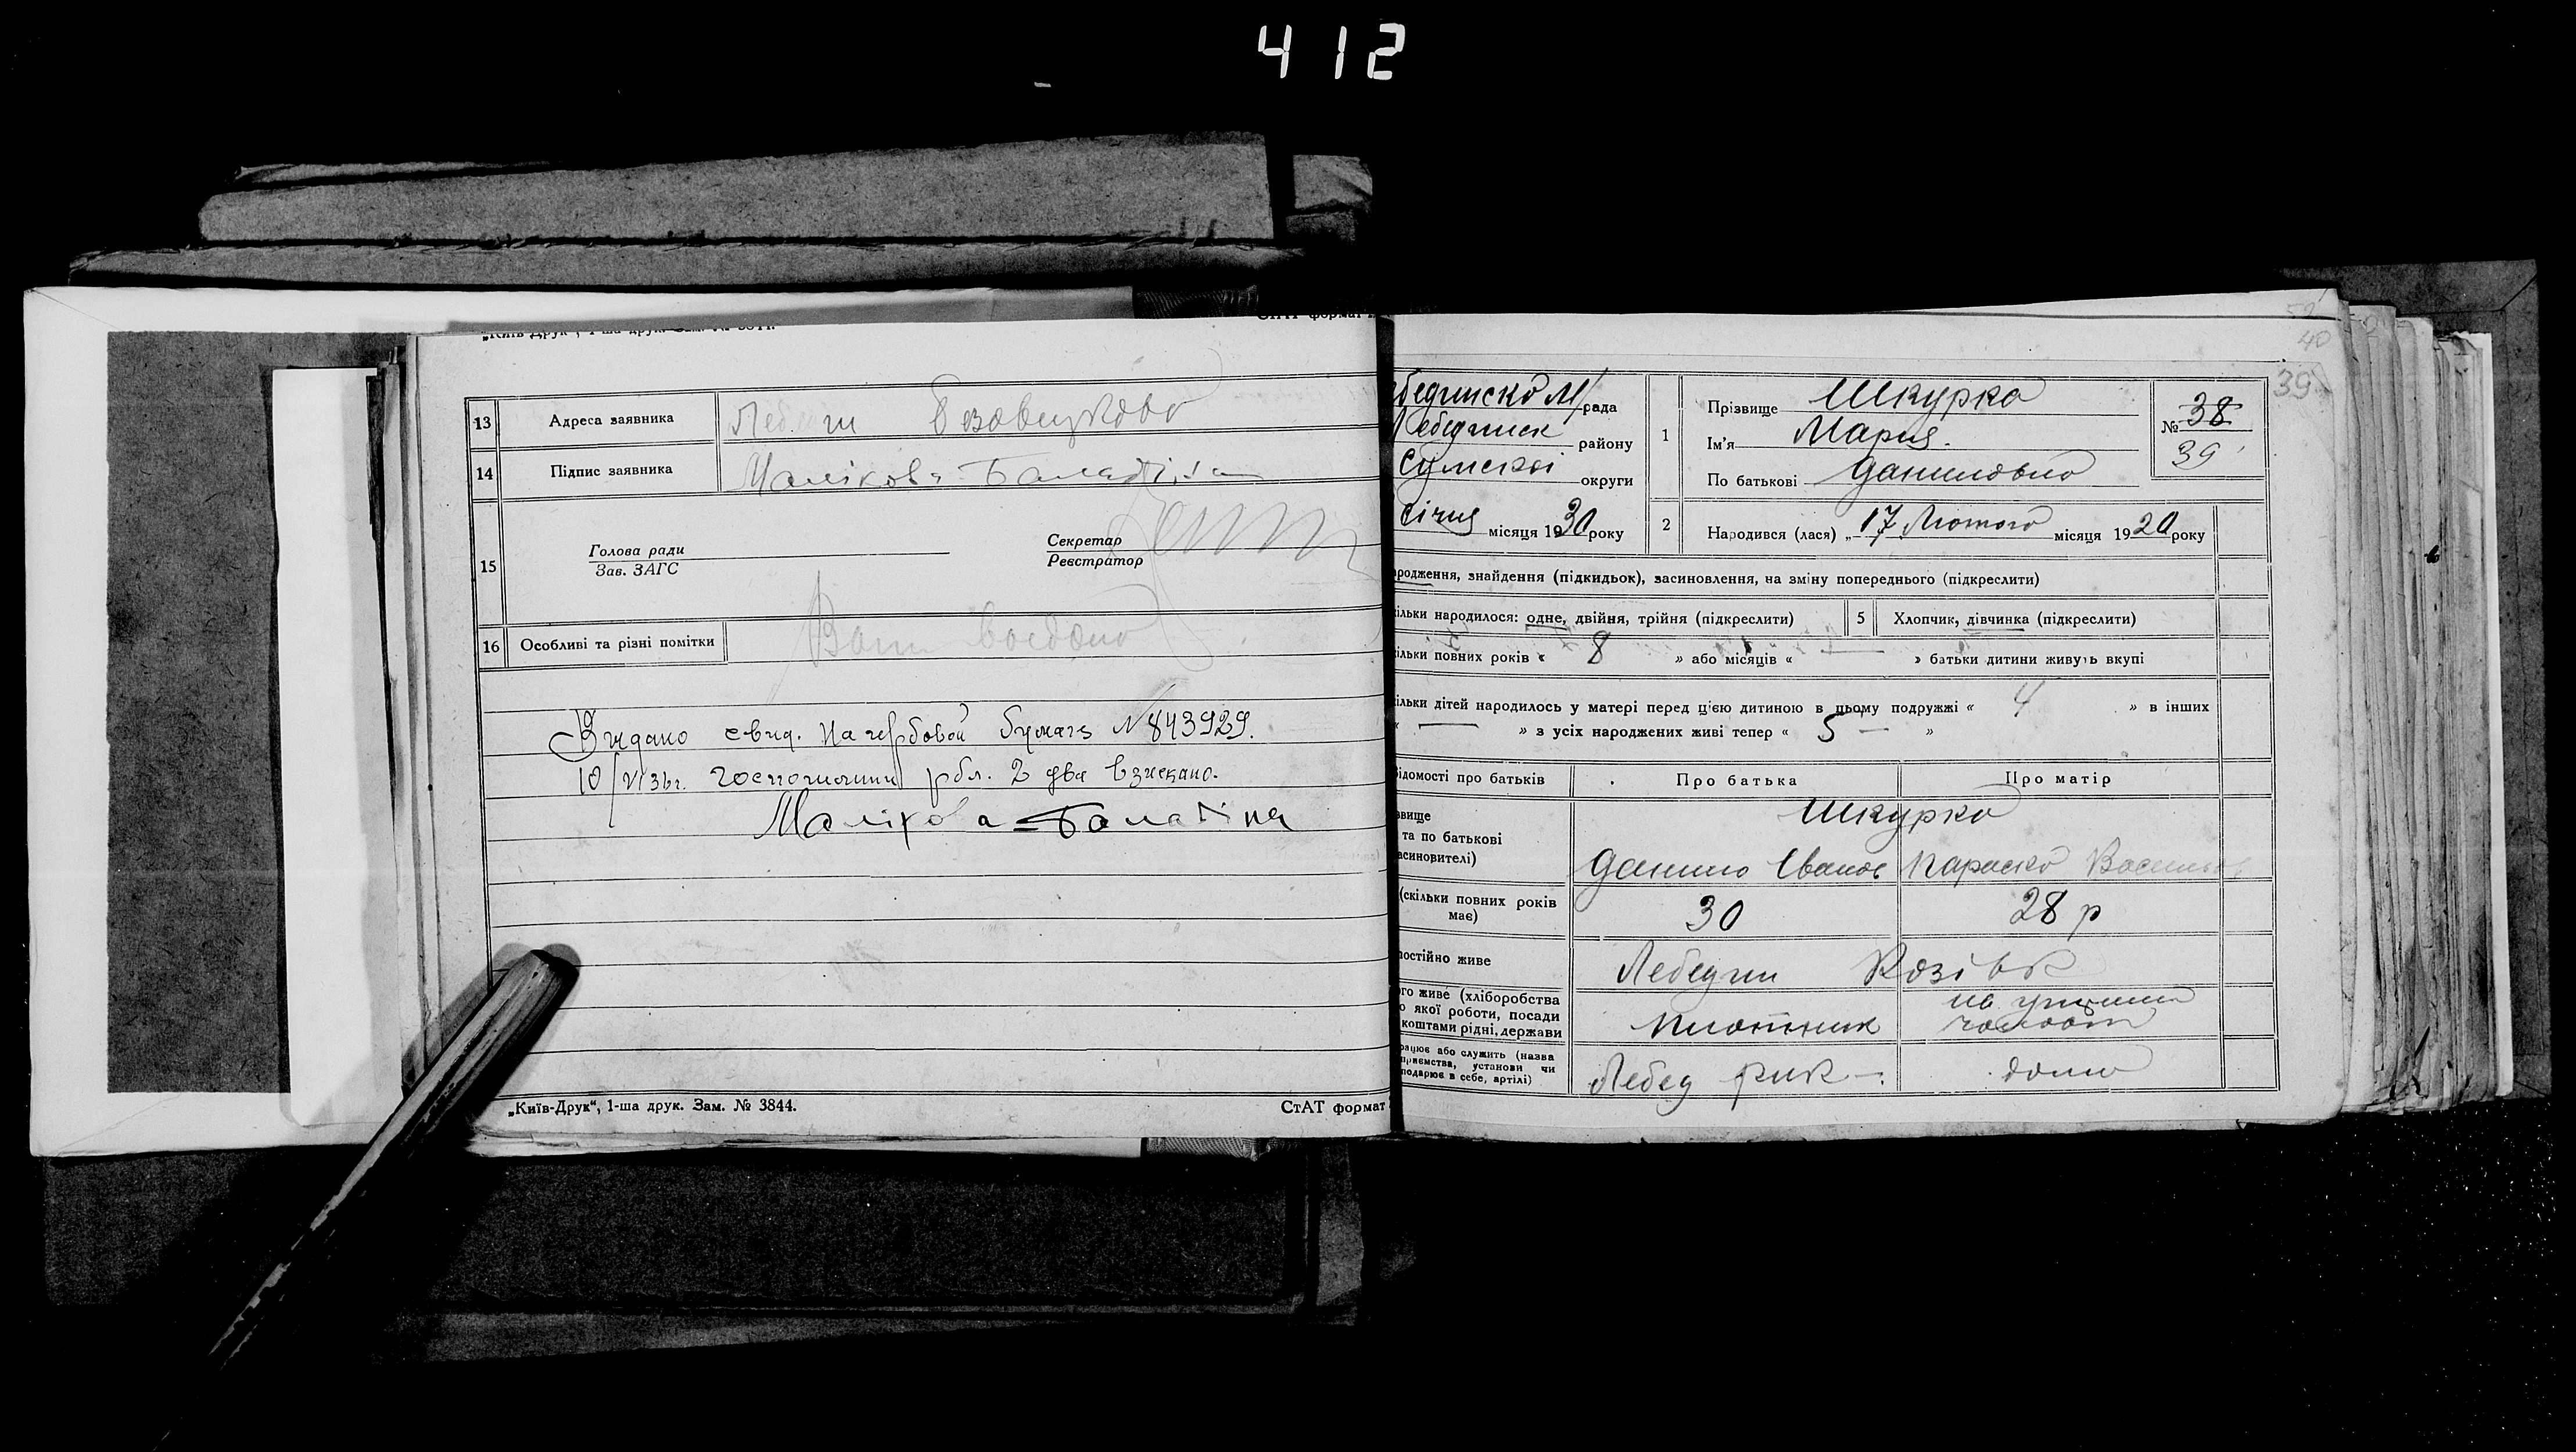 412
„Київ-Друк“, 1-ша друк. Зам. №
СтАТ формат
13 Адреса заявника
14 Підпис заявника Малікова-
15 Голова ради
Зав. ЗАГС
Секретар
Реєстратор
16 Особливі та різні помітки
Видано свид. На гербовой бумаге №843929.
10/VI 36г. госпошлини рбл. 2 два взискано.
Малікова-
„Київ-Друк“, 1-ша друк. Зам. № 3844.
СтАТ формат
52
40
39
бединско М/рада
Лебединск району
Сумской округи
січня місяця 1930 року
1 Прізвище Шкурко
Ім'я Мария.
По батькові Даниловна
№ 38
39
2 Народився (лася) „17 Лютого місяця 1920 року
родження, знайдення (підкидьок), засиновлення, на зміну попереднього (підкреслити)
ільки народилося: одне, двійня, трійня (підкреслити) 5 Хлопчик, дівчинка (підкреслити)
ільки повних років « 8 » або місяців « — » батьки дитини живуть вкупі
ільки дітей народилось у матері перед цією дитиною в цьому подружжі « 4 » в інших
« — » з усіх народжених живі тепер « 5 — »
ідомості про батьків Про батька Про матір
звище
та по батькові
асиновителі)
Шкурко
Данило Іванов Параска Васильов
(скільки повних років має) 30 28 р
постійно живе Лебедин
ого живе (хліборобства
о якої роботи, посади
коштами рідні, держави
Плотник на
рацює або служить (назва
приємства, установи чи
подарює в себе, артілі)
Лебед рик — дома